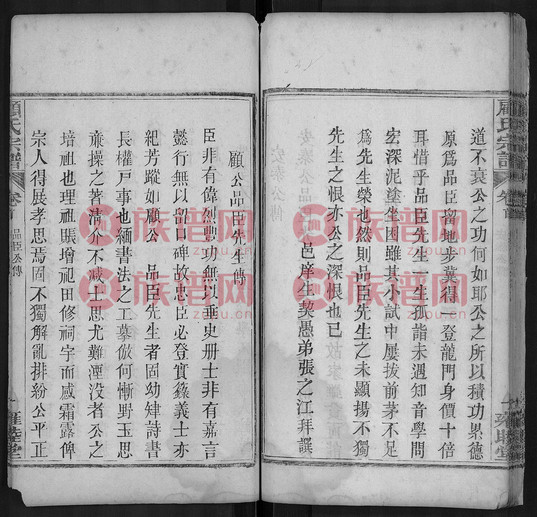 顧氏宗譜
卷首
道不衰公之功何如耶公之所以積功累德
原為品臣留地步冀得一登龍門身價十倍
耳惜乎品臣先生一生孤詣未遇知音學問
宏深泥塗坐困雖其小試中屢拔前茅不足
為先生榮也然則品臣先生之未顯揚不獨
先生之恨亦公之深恨也已
邑庠生契愚弟張之江拜譔
顧公品臣先生傳
臣非有偉烈豐功無以垂史册士非有嘉言
懿行無以留口碑故忠臣必登實錄義士亦
紀芳蹤如顧公品臣先生者固幼肄詩書
長權戶事也緬書法之工摹倣何慚野王思
廉操之著清介不減士思尤難湮没者公之
培祖也理祖賬增祀田修祠宇而感霜露俾
宗人得展孝思焉固不獨解亂排紛公平正
顧氏宗譜
卷首
品臣公傳
雍睦堂
族谱网
zupu.cn